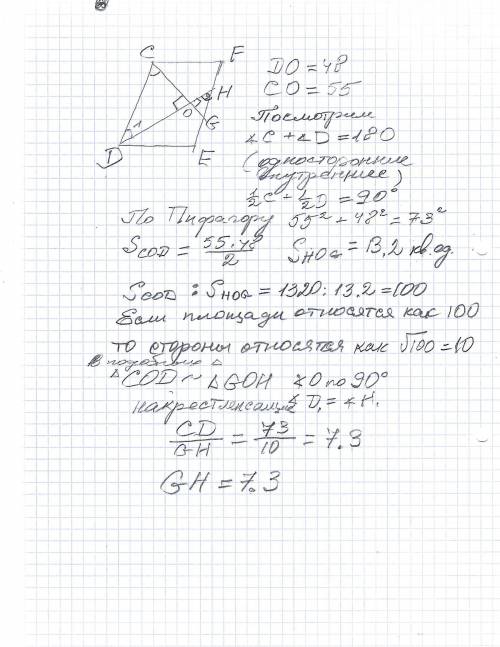 C F
H
O
G
D 1 E
DO = 48
CO = 55
Посмотрим
∠C + ∠D = 180
(односторонние
внутренние)
½C + ½D = 90°
По Пифагору 55² + 48² = 73²
S COD = 55·48 / 2 S HOG = 13,2 кв.ед.
S COD : S HOG = 1320 : 13.2 = 100
Если площади относятся как 100
то стороны относятся как √100 = 10
в подобных Δ
Δ COD ~ Δ GOH ∠O по 90°
накрестлежащие ∠D₁ = ∠H.
CD / GH = 73 / 10 = 7.3
GH = 7.3